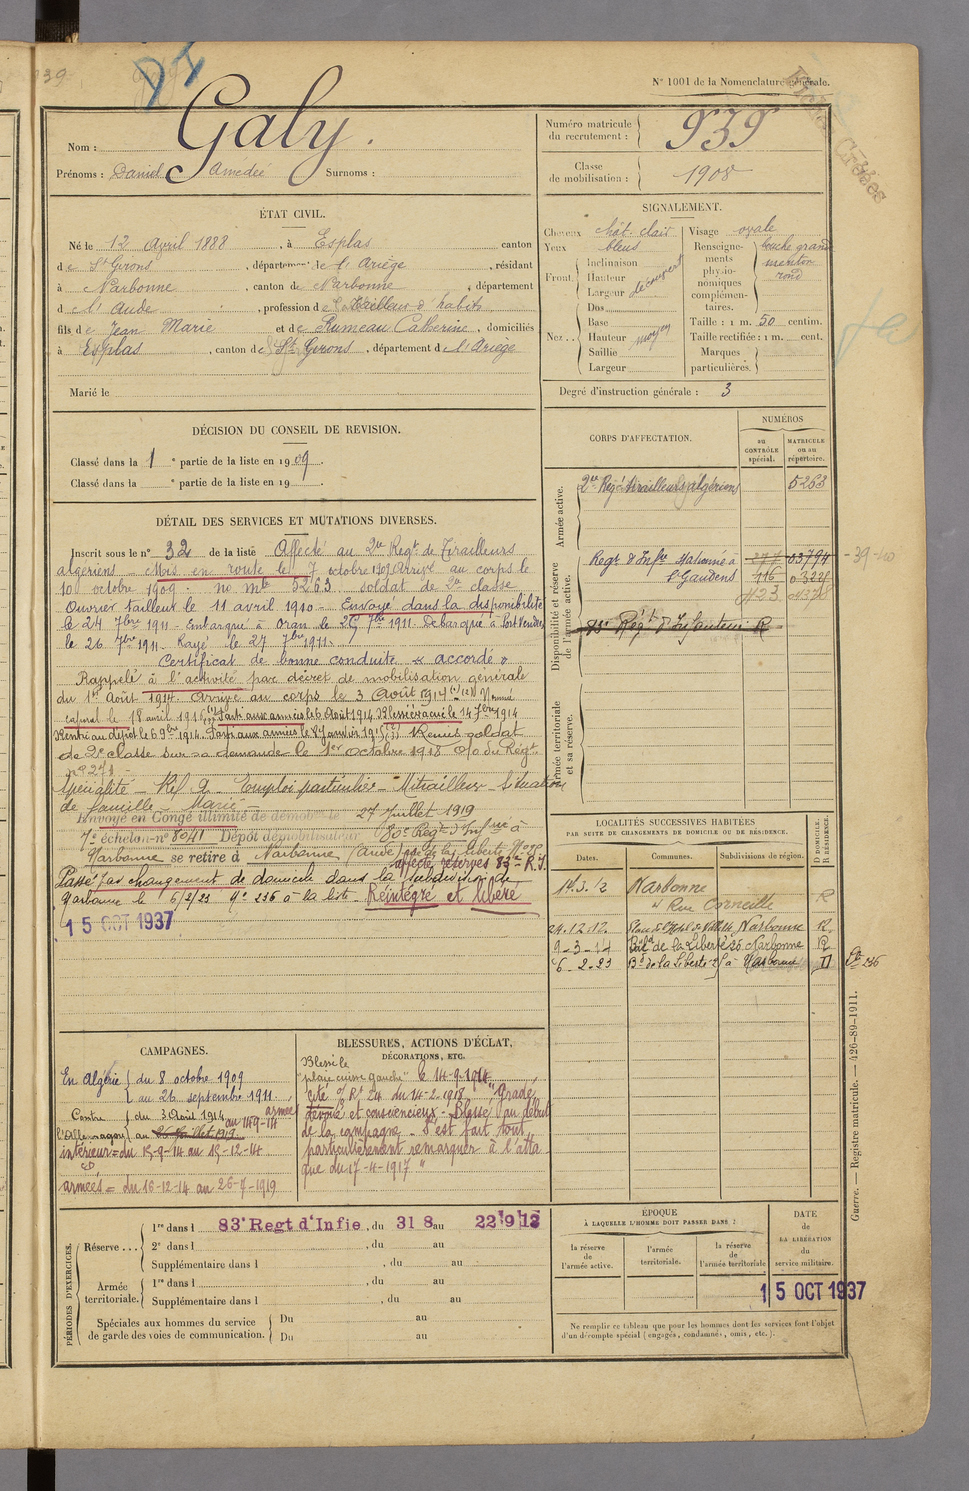 N° 1001 de la Nomenclature générale.
Nom : Galy.
Prénoms : Daniel Amédée Surnoms :
Numéro matricule du recrutement : 939
Classe de mobilisation : 1908
ÉTAT CIVIL.
Né le 12 Avril 1888, à Esplas canton
de St Girons, département de l'Ariège, résidant
à Narbonne, canton de Narbonne, département
d l'Aude, profession de Tailleur d'habits
fils de Jean Marie et de Rumeau Catherine, domiciliés
à Esplas, canton de St Girons, département d l'Ariège
Marié le
SIGNALEMENT.
Cheveux chât. clair
Yeux bleus
Front. Inclinaison
Hauteur
Largeur découvert
Nez... Dos
Base
Hauteur moyen
Saillie
Largeur
Visage ovale
Renseignements physionomiques complémentaires. bouche grande menton rond
Taille : 1 m. 50 centim.
Taille rectifiée : 1 m. cent.
Marques particulières.
Degré d'instruction générale : 3
DÉCISION DU CONSEIL DE REVISION.
Classé dans la 1e partie de la liste en 1909.
Classé dans la e partie de la liste en 19 .
DÉTAIL DES SERVICES ET MUTATIONS DIVERSES.
Inscrit sous le n° 32 de la liste Affecté au 2me Regt de Tirailleurs
algériens - Mis en route le 7 octobre 1909 Arrivé au corps le
10 octobre 1909. no mle 5263. soldat de 2e classe
Ouvrier tailleur le 11 avril 1910 - Envoyé dans la disponibilité
le 24 7bre 1911 - Embarqué à Oran le 25 7bre 1911. Débarqué à Port Vendres
le 26 7bre 1911. Rayé le 27 7bre 1911.
Certificat de bonne conduite "accordé"
Rappelé à l'activité par décret de mobilisation générale
du 1er Août 1914. Arrivé au corps le 3 Août 1914 Nommé
caporal le 18 avril 1916 Parti aux armées le 6 Août 1914. Blessé évacué le 14 7bre 1914
Rentré au dépôt le 6 9bre 1914. Parti aux armées le 8 janvier 1915 Remis soldat
de 2e classe sur sa demande le 1er octobre 1918 O/o du Régt
n° 271 -
Spécialité - Emploi particulier - Mitrailleur - Situation
de famille - Marié -
Envoyé en Congé illimité de démobilisation 27 Juillet 1919
7e échelon n° 8041 Dépôt démobilisateur 80e Regt d'Infrie à
Narbonne se retire à Narbonne (Aude) rue de la Liberté
affecté réserves 83e R.I.
Passé par changement de domicile dans la subdivision de
Narbonne le 6/2/23 n° 236 à la liste. Réintégré et libéré
15 OCT 1937
CORPS D'AFFECTATION.
NUMÉROS
au CONTRÔLE spécial.
MATRICULE ou au répertoire.
Armée active.
2me Régt tirailleurs algériens 5263
Disponibilité et réserve de l'armée active.
Regt d'Infie stationné à St Gaudens 277 03794
116
423
Régt d'Infanterie R
Armée territoriale et sa réserve.
LOCALITÉS SUCCESSIVES HABITÉES
PAR SUITE DE CHANGEMENTS DE DOMICILE OU DE RÉSIDENCE.
Dates. Communes. Subdivisions de région. D DOMICILE. R RÉSIDENCE.
Narbonne
4 Rue Corneille R
24.12.12. Place de l'Hotel de Ville Narbonne R.
9-3-14 Bould de la Liberté 26 Narbonne R
6-2-23 Bd de la Liberté à Narbonne D
CAMPAGNES.
En Algérie du 8 octobre 1909
au 26 septembre 1911.
Contre l'Allemagne du 3 Août 1914 au 14-9-14 armées
au 26 Juillet 1919
intérieur = du 15-9-14 au 15-12-14
armées = du 16-12-14 au 26-7-1919
BLESSURES, ACTIONS D'ÉCLAT,
DÉCORATIONS, ETC.
Blessé le
"plaie cuisse gauche" le 14-9-1914
cité o/ Rt 24 du 14-2-1918 "Gradé
dévoué et consciencieux - Blessé au début
de la campagne. S'est fait tout
particulièrement remarquer à l'atta
que du 17-4-1917"
PÉRIODES D'EXERCICES.
Réserve... 1re dans l 83e Regt d'Infie, du 31 8 au 22 9 13
2e dans l , du au
Supplémentaire dans l , du au
Armée territoriale. 1re dans l , du au
Supplémentaire dans l , du au
Spéciales aux hommes du service de garde des voies de communication. Du au
Du au
ÉPOQUE
À LAQUELLE L'HOMME DOIT PASSER DANS :
la réserve de l'armée active.
l'armée territoriale.
la réserve de l'armée territoriale
DATE de LA LIBÉRATION du service militaire.
15 OCT 1937
Ne remplir ce tableau que pour les hommes dont les services font l'objet
d'un décompte spécial (engagés, condamnés, omis, etc.).
Guerre. — Registre matricule. — 426-89-1911.